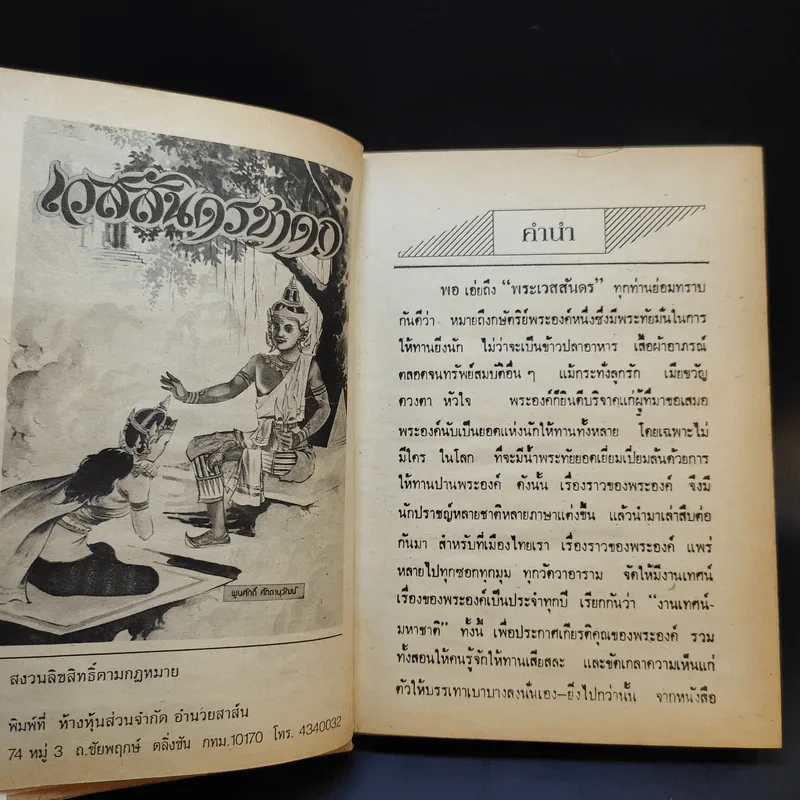 เวสสันดรชาดก
พูนศักดิ์ ศักดานุวัฒน์
สงวนลิขสิทธิ์ตามกฎหมาย
พิมพ์ที่ ห้างหุ้นส่วนจำกัด อำนวยสาส์น
74 หมู่ 3 ถ.ชัยพฤกษ์ ตลิ่งชัน กทม.10170 โทร. 4340032
คำนำ
พอ เอ่ยถึง “พระเวสสันดร” ทุกท่านย่อมทราบ
กันดีว่า หมายถึงกษัตริย์พระองค์หนึ่งซึ่งมีพระทัยมั่นในการ
ให้ทานยิ่งนัก ไม่ว่าจะเป็นข้าวปลาอาหาร เสื้อผ้าอาภรณ์
ตลอดจนทรัพย์สมบัติอื่น ๆ แม้กระทั่งลูกรัก เมียขวัญ
ดวงตา หัวใจ พระองค์ก็ยินดีบริจาคแก่ผู้ที่มาขอเสมอ
พระองค์นับเป็นยอดแห่งนักให้ทานทั้งหลาย โดยเฉพาะไม่
มีใคร ในโลก ที่จะมีน้ำพระทัยยอดเยี่ยมเปี่ยมล้นด้วยการ
ให้ทานปานพระองค์ ดังนั้น เรื่องราวของพระองค์ จึงมี
นักปราชญ์หลายชาติหลายภาษาแต่งขึ้น แล้วนำมาเล่าสืบต่อ
กันมา สำหรับที่เมืองไทยเรา เรื่องราวของพระองค์ แพร่
หลายไปทุกซอกทุกมุม ทุกวัดวาอาราม จัดให้มีงานเทศน์
เรื่องของพระองค์เป็นประจำทุกปี เรียกกันว่า “งานเทศน์-
มหาชาติ” ทั้งนี้ เพื่อประกาศเกียรติคุณของพระองค์ รวม
ทั้งสอนให้คนรู้จักให้ทานเสียสละ และขัดเกลาความเห็นแก่
ตัวให้บรรเทาเบาบางลงนั่นเอง—ยิ่งไปกว่านั้น จากหนังสือ